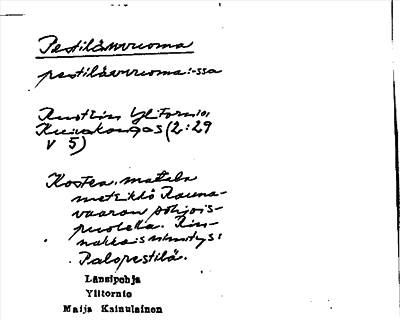 Pestilänvuoma
pestilänvuoma:-ssa
Ruotsin Ylitornio,
Kuivakangas (2:29
V 5)
Kostea, matala
metsikkö Rauna-
vaaran pohjois-
puolella. Rin-
nakkaisnimitys:
Palopestilä.
Länsipohja
Ylitornio
Maija Kainulainen